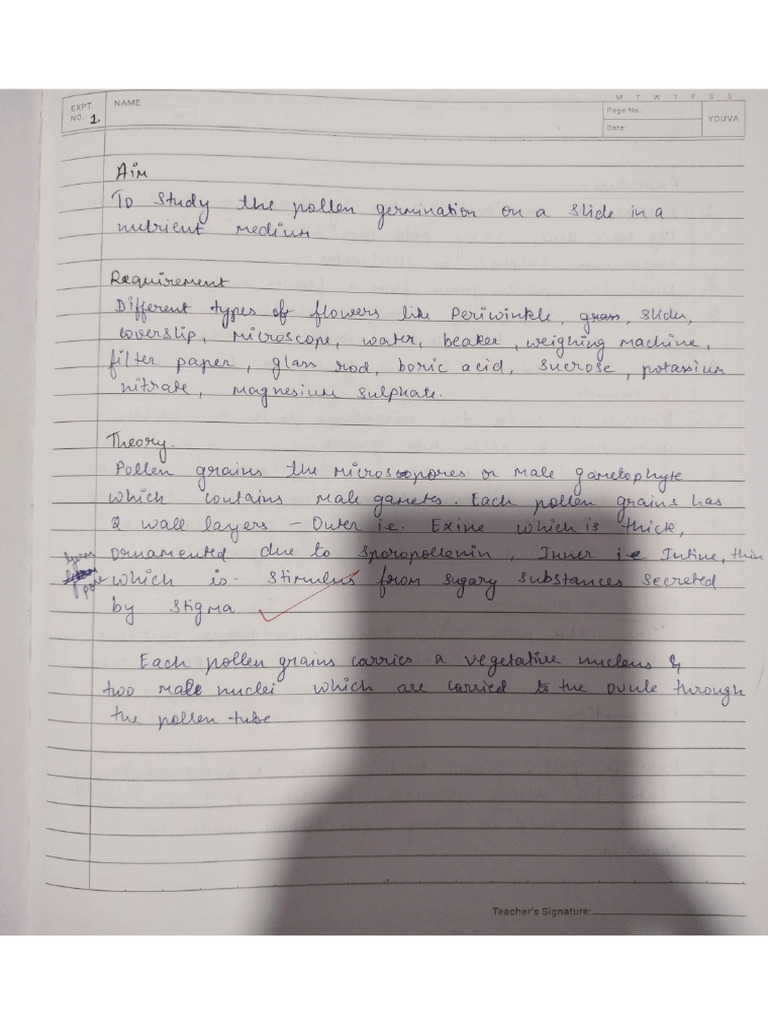 M T W T F S S
EXPT. NO. 1. NAME
Page No.
Date:
YOUVA
Aim
To study the pollen germination on a slide in a
nutrient medium
Requirement
Different types of flowers like Periwinkle, grass, slides,
coverslip, microscope, water, beaker, weighing machine,
filter paper, glass rod, boric acid, sucrose, potassium
nitrate, magnesium sulphate.
Theory.
Pollen grains the microspores or male gametophyte
which contains male gametes. Each pollen grains has
2 wall layers - Outer i.e. Exine which is thick,
ornamented due to sporopollenin, Inner i.e Intine, thin
which is stimulus from sugary substances secreted
by stigma
Each pollen grains carries a vegetative nucleus &
two male nuclei which are carried to the ovule through
the pollen-tube
Teacher's Signature: